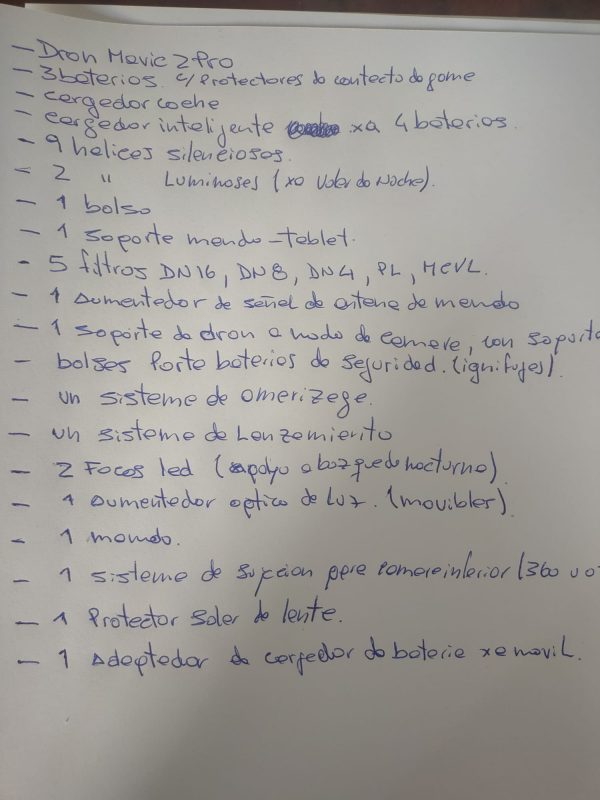 - Dron Mavic 2 Pro
- 3 baterias c/ Protectores de contacto de goma
- cargador coche
- cargador inteligente xa 4 baterias.
- 9 helices silenciosas.
- 2 " Luminosas (xa Volar de Noche).
- 1 bolso
- 1 soporte mando-tablet.
- 5 filtros DN16, DN8, DN4, PL, MCVL.
- 1 Aumentador de señal de antena de mando
- 1 soporte de dron a modo de camara, con soporte
- bolsas Porta baterias de seguridad. (ignifugas).
- un sistema de amerizage.
- un sistema de Lanzamiento
- 2 Focos led (apoyo a bozquedo nocturno)
- 1 Aumentador optico de Luz. (movibles)
- 1 mando.
- 1 sistema de sujecion para camara inferior (360 u o
- 1 Protector Solar de lente.
- 1 Adaptador de cargador de bateria xa movil.